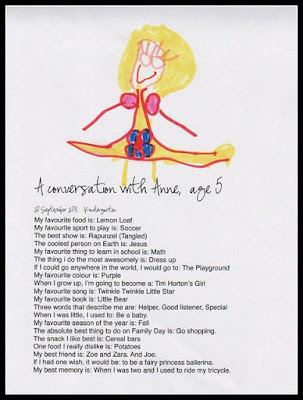 A conversation with Anne, age 5
27 September 2011 Kindergarten
My favourite food is: Lemon Loaf
My favourite sport to play is: Soccer
The best show is: Rapunzel (Tangled)
The coolest person on Earth is: Jesus
My favourite thing to learn in school is: Math
The thing i do the most awesomely is: Dress up
If I could go anywhere in the world, I would go to: The Playground
My favourite colour is: Purple
When I grow up, I'm going to become a: Tim Horton's Girl
My favourite song is: Twinkle Twinkle Little Star
My favourite book is: Little Bear
Three words that describe me are: Helper, Good listener, Special
When I was little, I used to: Be a baby.
My favourite season of the year is: Fall
The absolute best thing to do on Family Day is: Go shopping.
The snack I like best is: Cereal bars
One food I really dislike is: Potatoes
My best friend is: Zoe and Zara. And Joe.
If I had one wish, it would be: to be a fairy princess ballerina.
My best memory is: When I was two and I used to ride my tricycle.